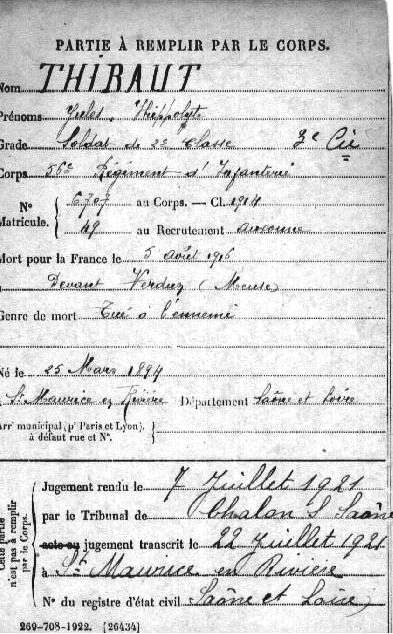 PARTIE À REMPLIR PAR LE CORPS.
Nom THIBAUT
Prénoms Jules, Hippolyte
Grade Soldat de 2e Classe 3e Cie
Corps 56e Régiment d'Infanterie
N° Matricule. { 6707 au Corps. — Cl. 1914
49 au Recrutement auxonne
Mort pour la France le 5 août 1916
à Devant Verdun (Meuse)
Genre de mort Tué à l'ennemi
Né le 25 Mars 1894
à St Maurice en Rivière Département Saône et Loire
Arr^t municipal (p^r Paris et Lyon),
à défaut rue et N°.
Cette partie n'est pas à remplir par le Corps.
Jugement rendu le 7 Juillet 1921
par le Tribunal de Chalon S Saône
acte ou jugement transcrit le 22 Juillet 1921
à St Maurice en Rivière
N° du registre d'état civil (Saône et Loire)
269-708-1922. [26434]